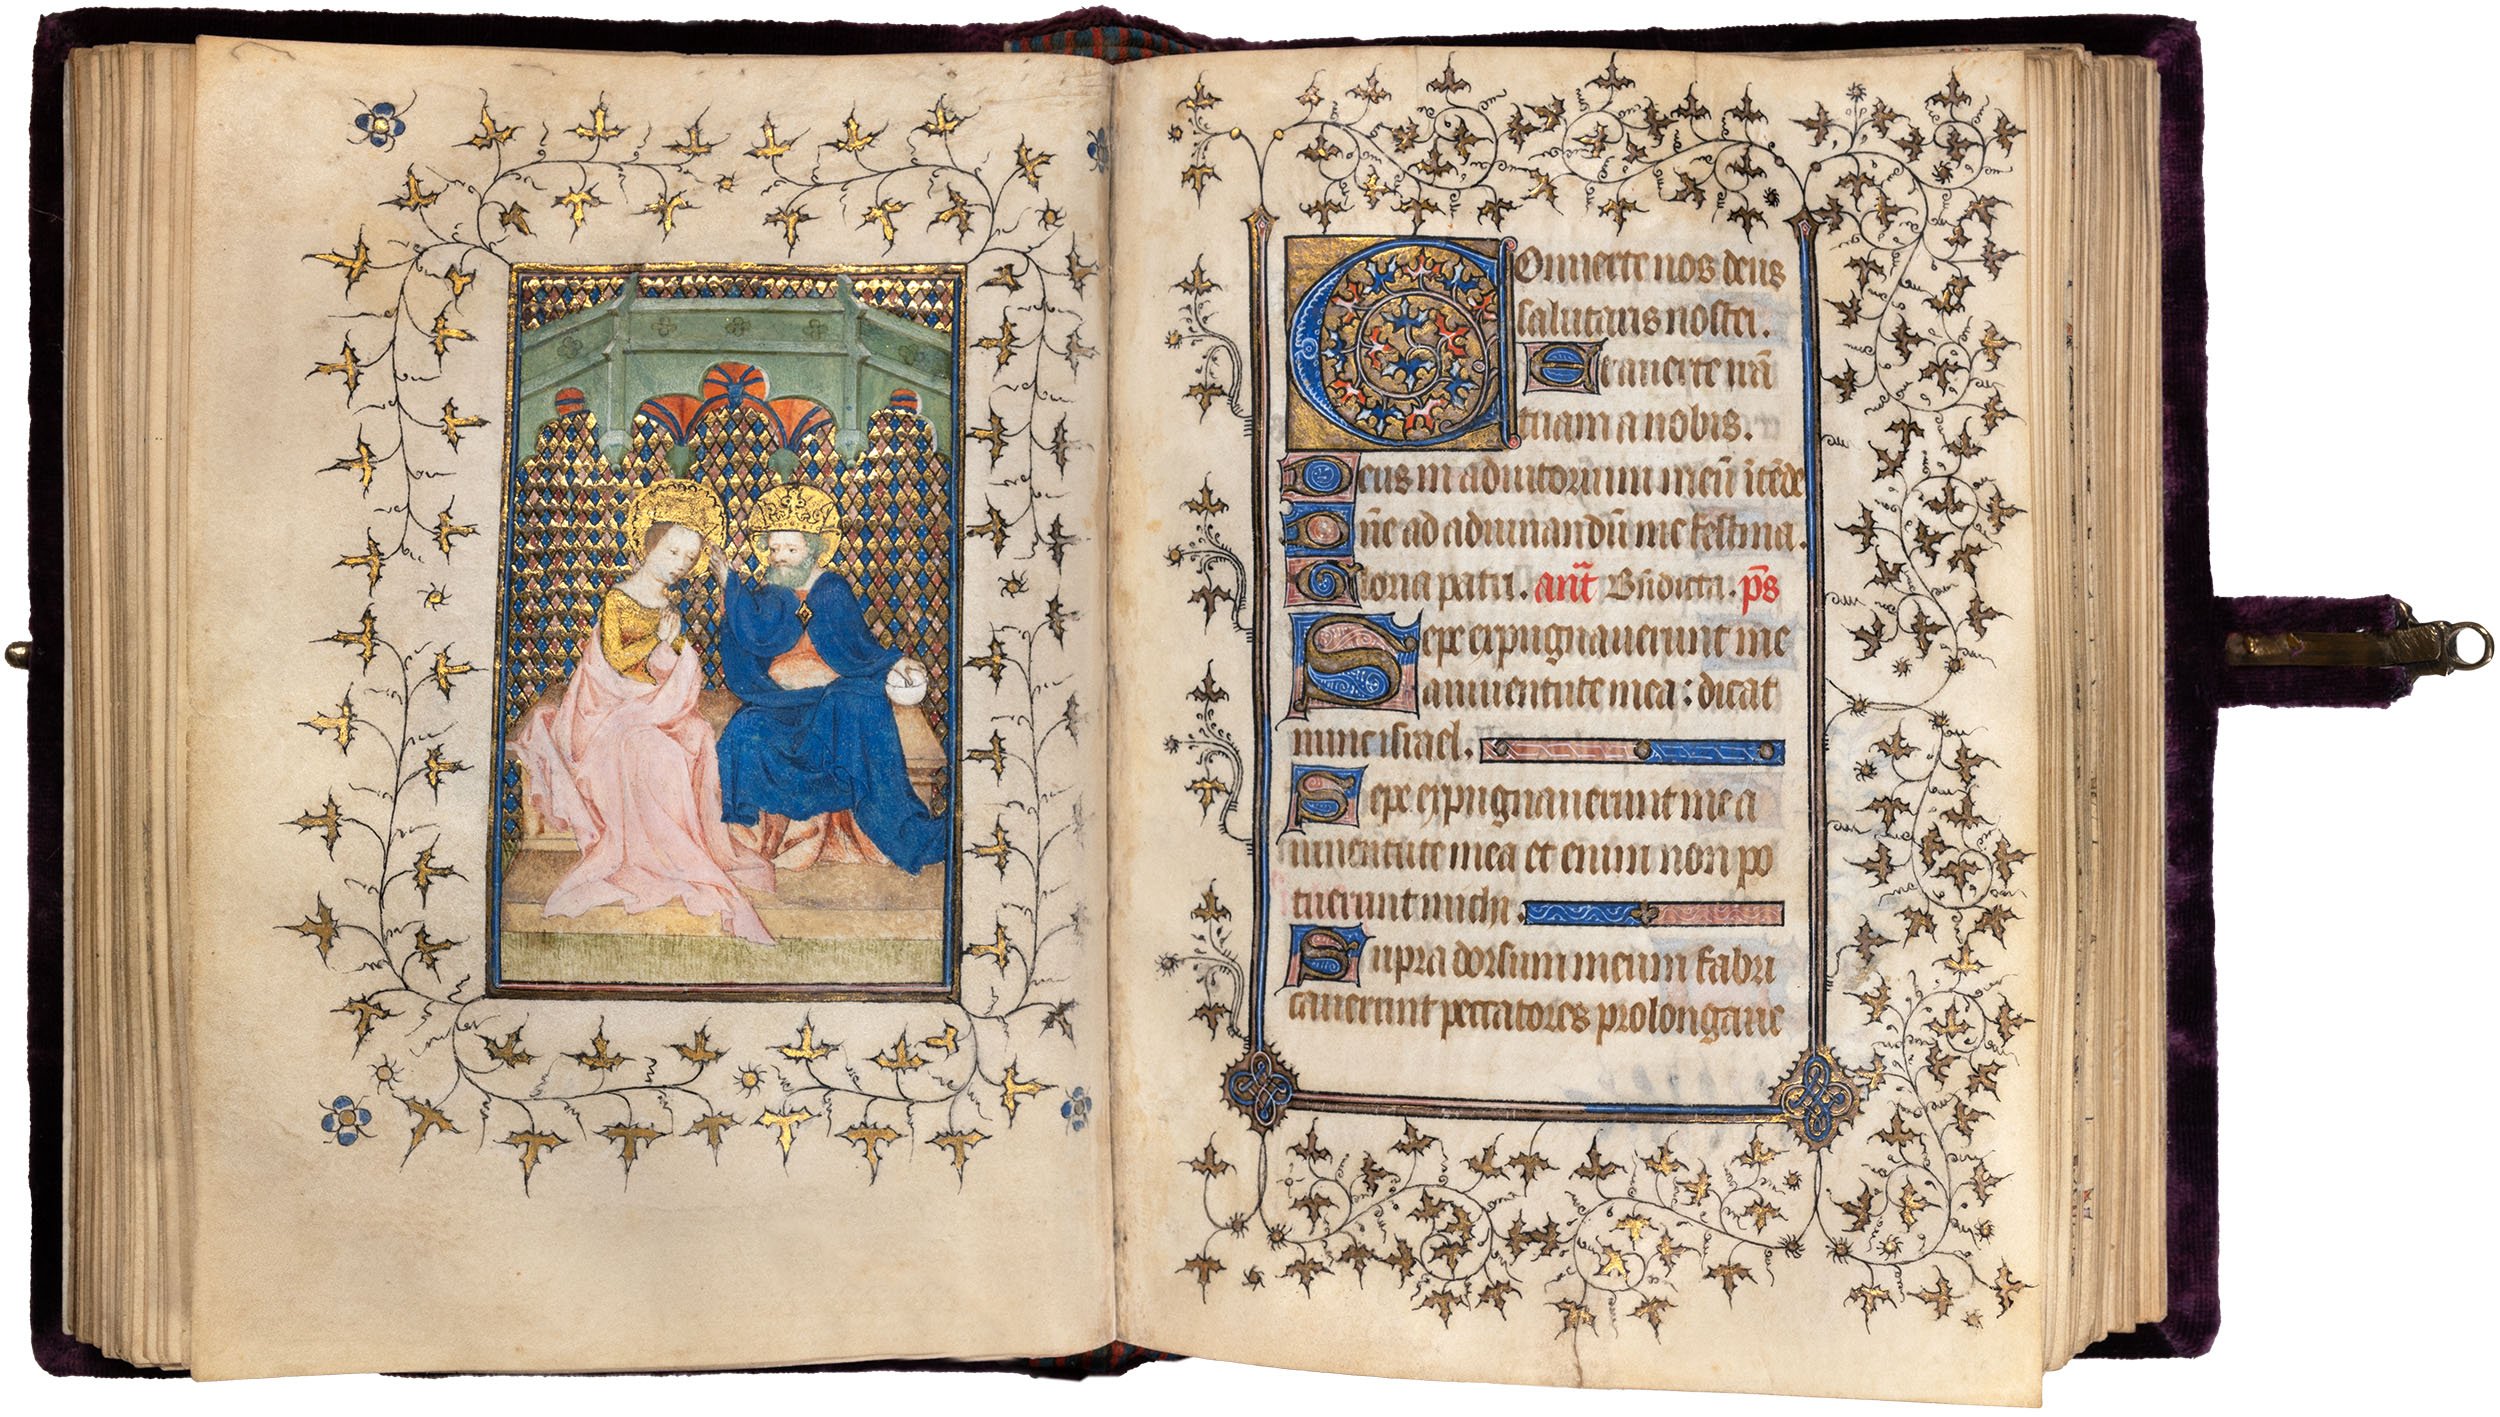 Conuerte nos deus
salutaris noster.
Et auerte irã
tuam a nobis.
Deus in adiutorium meũ ĩtẽde
Dñe ad adiuuandũ me festina.
Gloria patri. añt Bñdicta. p̃s
Sepe expugnauerunt me
a iuuentute mea: dicat
nunc israel.
Sepe expugnauerunt me a
iuuentute mea et enim non po
tuerunt michi.
Supra dorsum meum fabri
cauerunt peccatores prolongaue